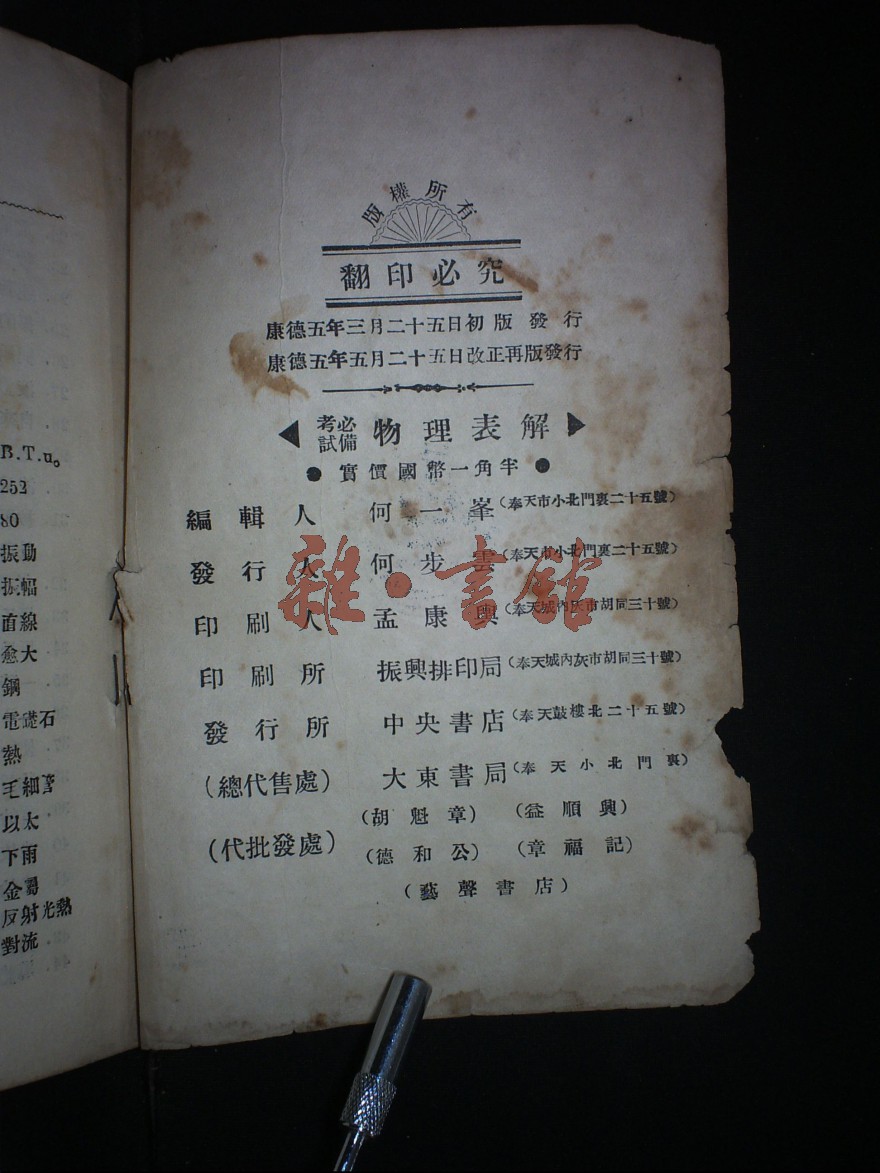 B.T.u。
252
80
振動
振幅
直線
愈大
鋼
電磁石
熱
毛細
以太
下雨
金
反射光熱
對流
版權所有
翻印必究
康德五年三月二十五日初版發行
康德五年五月二十五日改正再版發行
考試必備 物理表解
實價國幣一角半
編輯人 何一峯(奉天市小北門裏二十五號)
發行人 何步雲(奉天市小北門裏二十五號)
雜·書館
印刷人 孟康興(奉天城內灰市胡同三十號)
印刷所 振興排印局(奉天城內灰市胡同三十號)
發行所 中央書店(奉天鼓樓北二十五號)
(總代售處) 大東書局(奉天小北門裏)
(胡魁章) (益順興)
(代批發處)
(德和公) (章福記)
(藝聲書店)